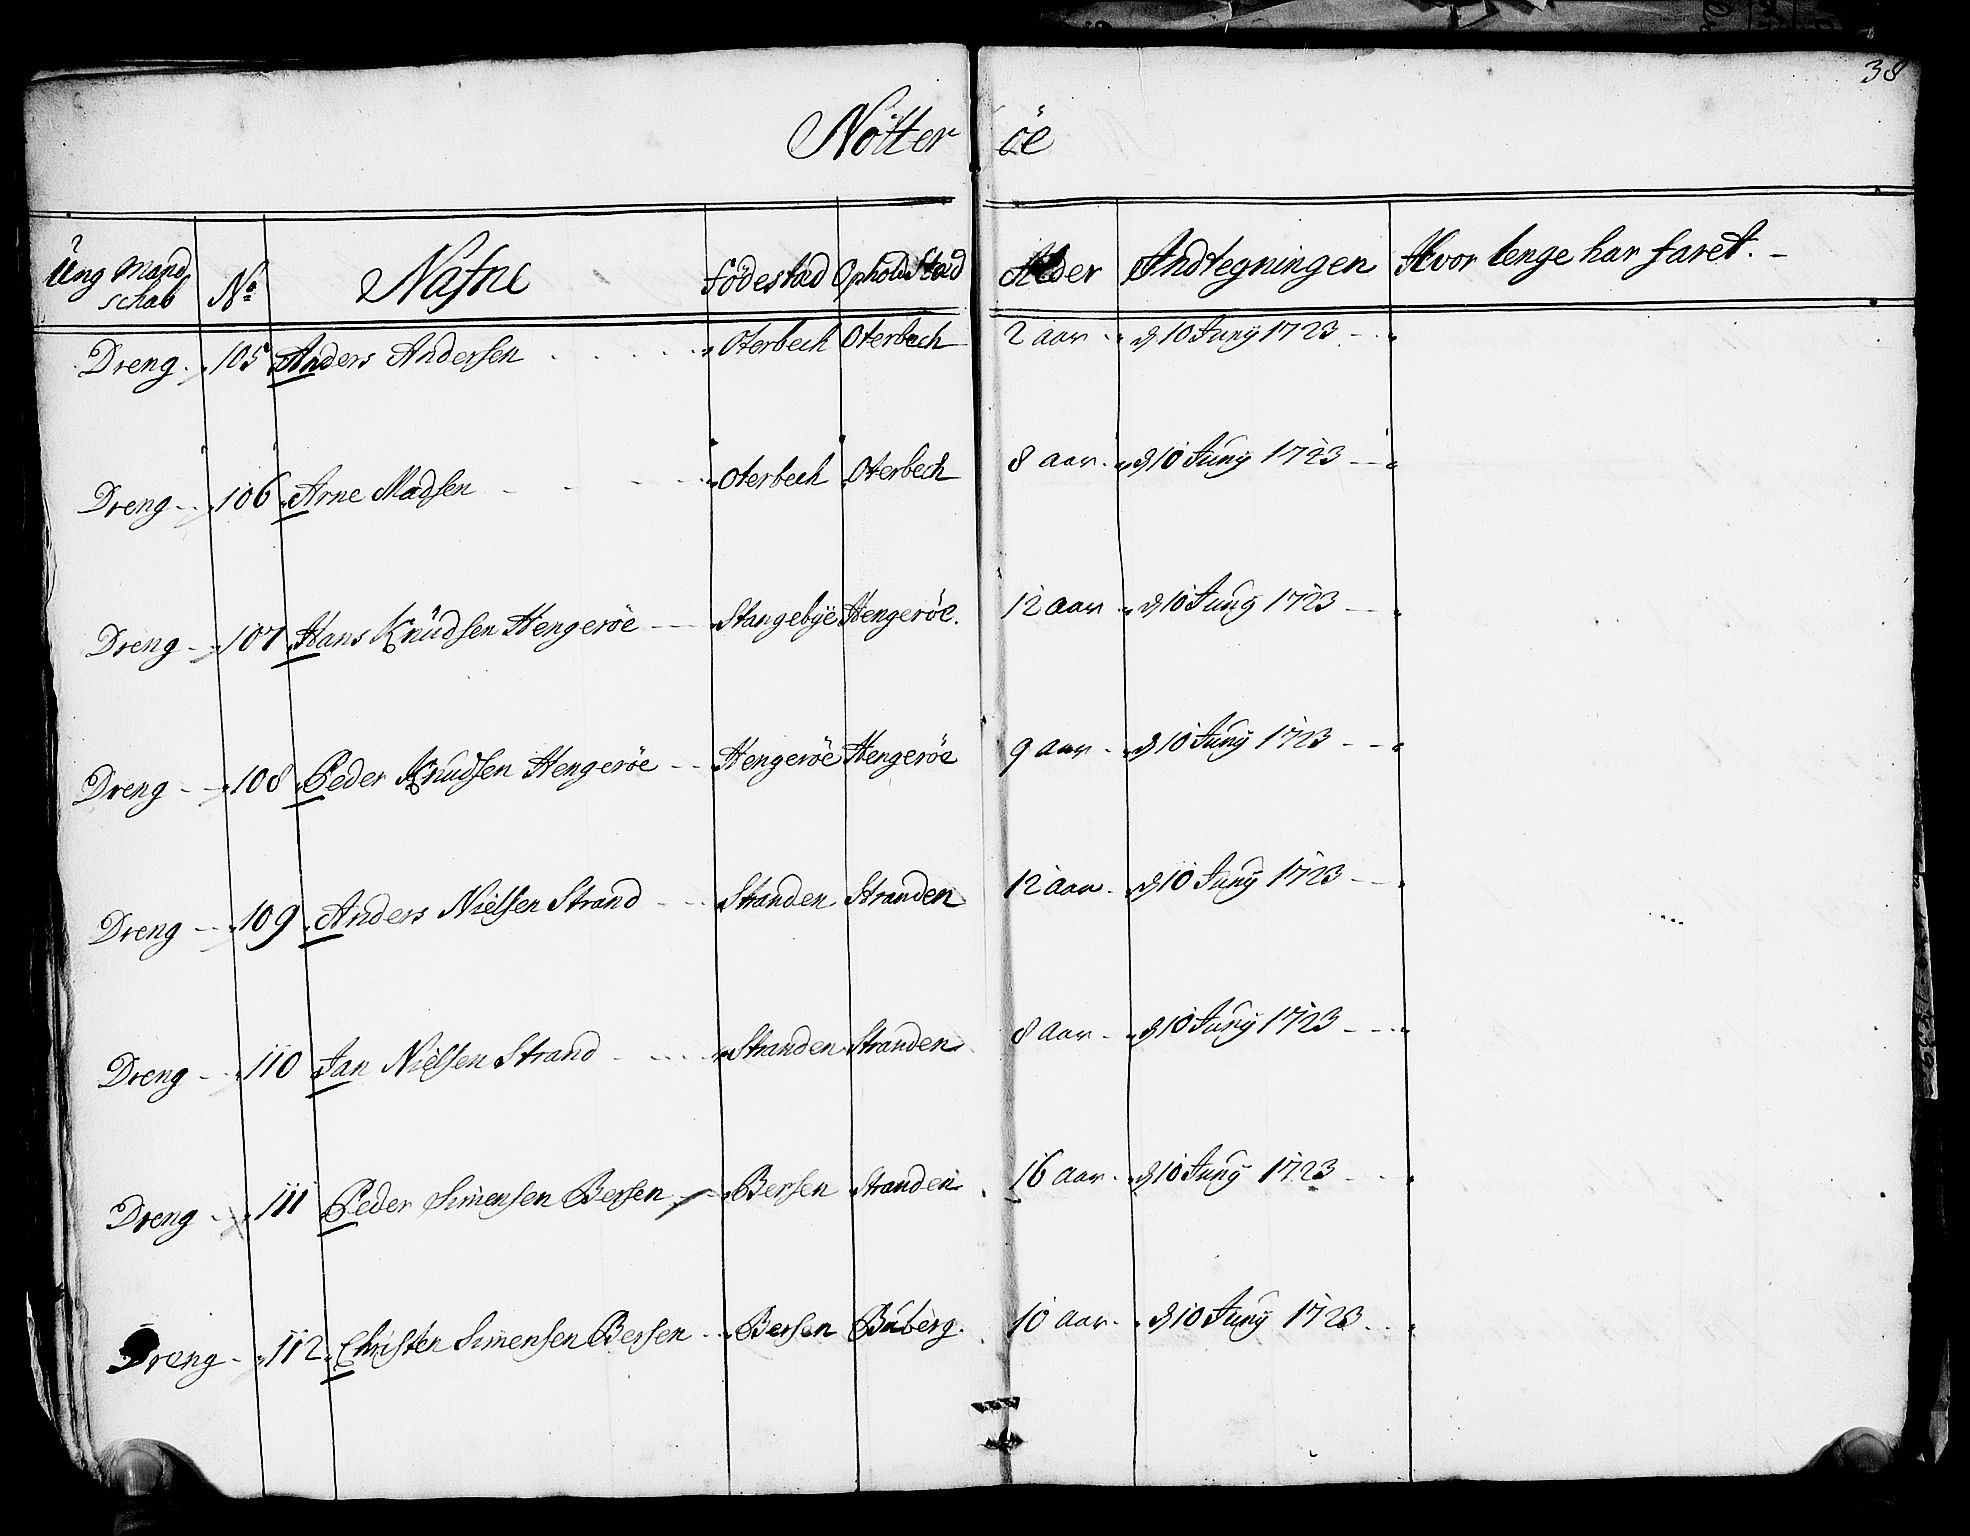 38
Nötter öe
Ung Mandschab No Nafne Födestad Opholds Stad Alder Andtegningen Hvor lenge har faret. -
Dreng 105 Anders Andersen Oterbech Oterbech 2 aar d 10 Junÿ 1723
Dreng 106 Arne Madsen Oterbech Oterbech 8 aar d 10 Junÿ 1723
Dreng 107 Hans Knudsen Hengeröe Stangebÿe Hengeröe. 12 aar d 10 Junÿ 1723
Dreng 108 Peder Knudsen Hengeröe Hengeröe Hengeröe 9 aar d 10 Junÿ 1723
Dreng 109 Anders Nielsen Strand Stranden Stranden 12 aar d 10 Junÿ 1723
Dreng 110 Jan Nielsen Strand Stranden Stranden 8 aar d 10 Junÿ 1723
Dreng 111 Peder Simensen Bersen Bersen Stranden 16 aar d 10 Junÿ 1723
Dreng 112 Christen Simensen Bersen Bersen Buberg. 10 aar d 10 Junÿ 1723